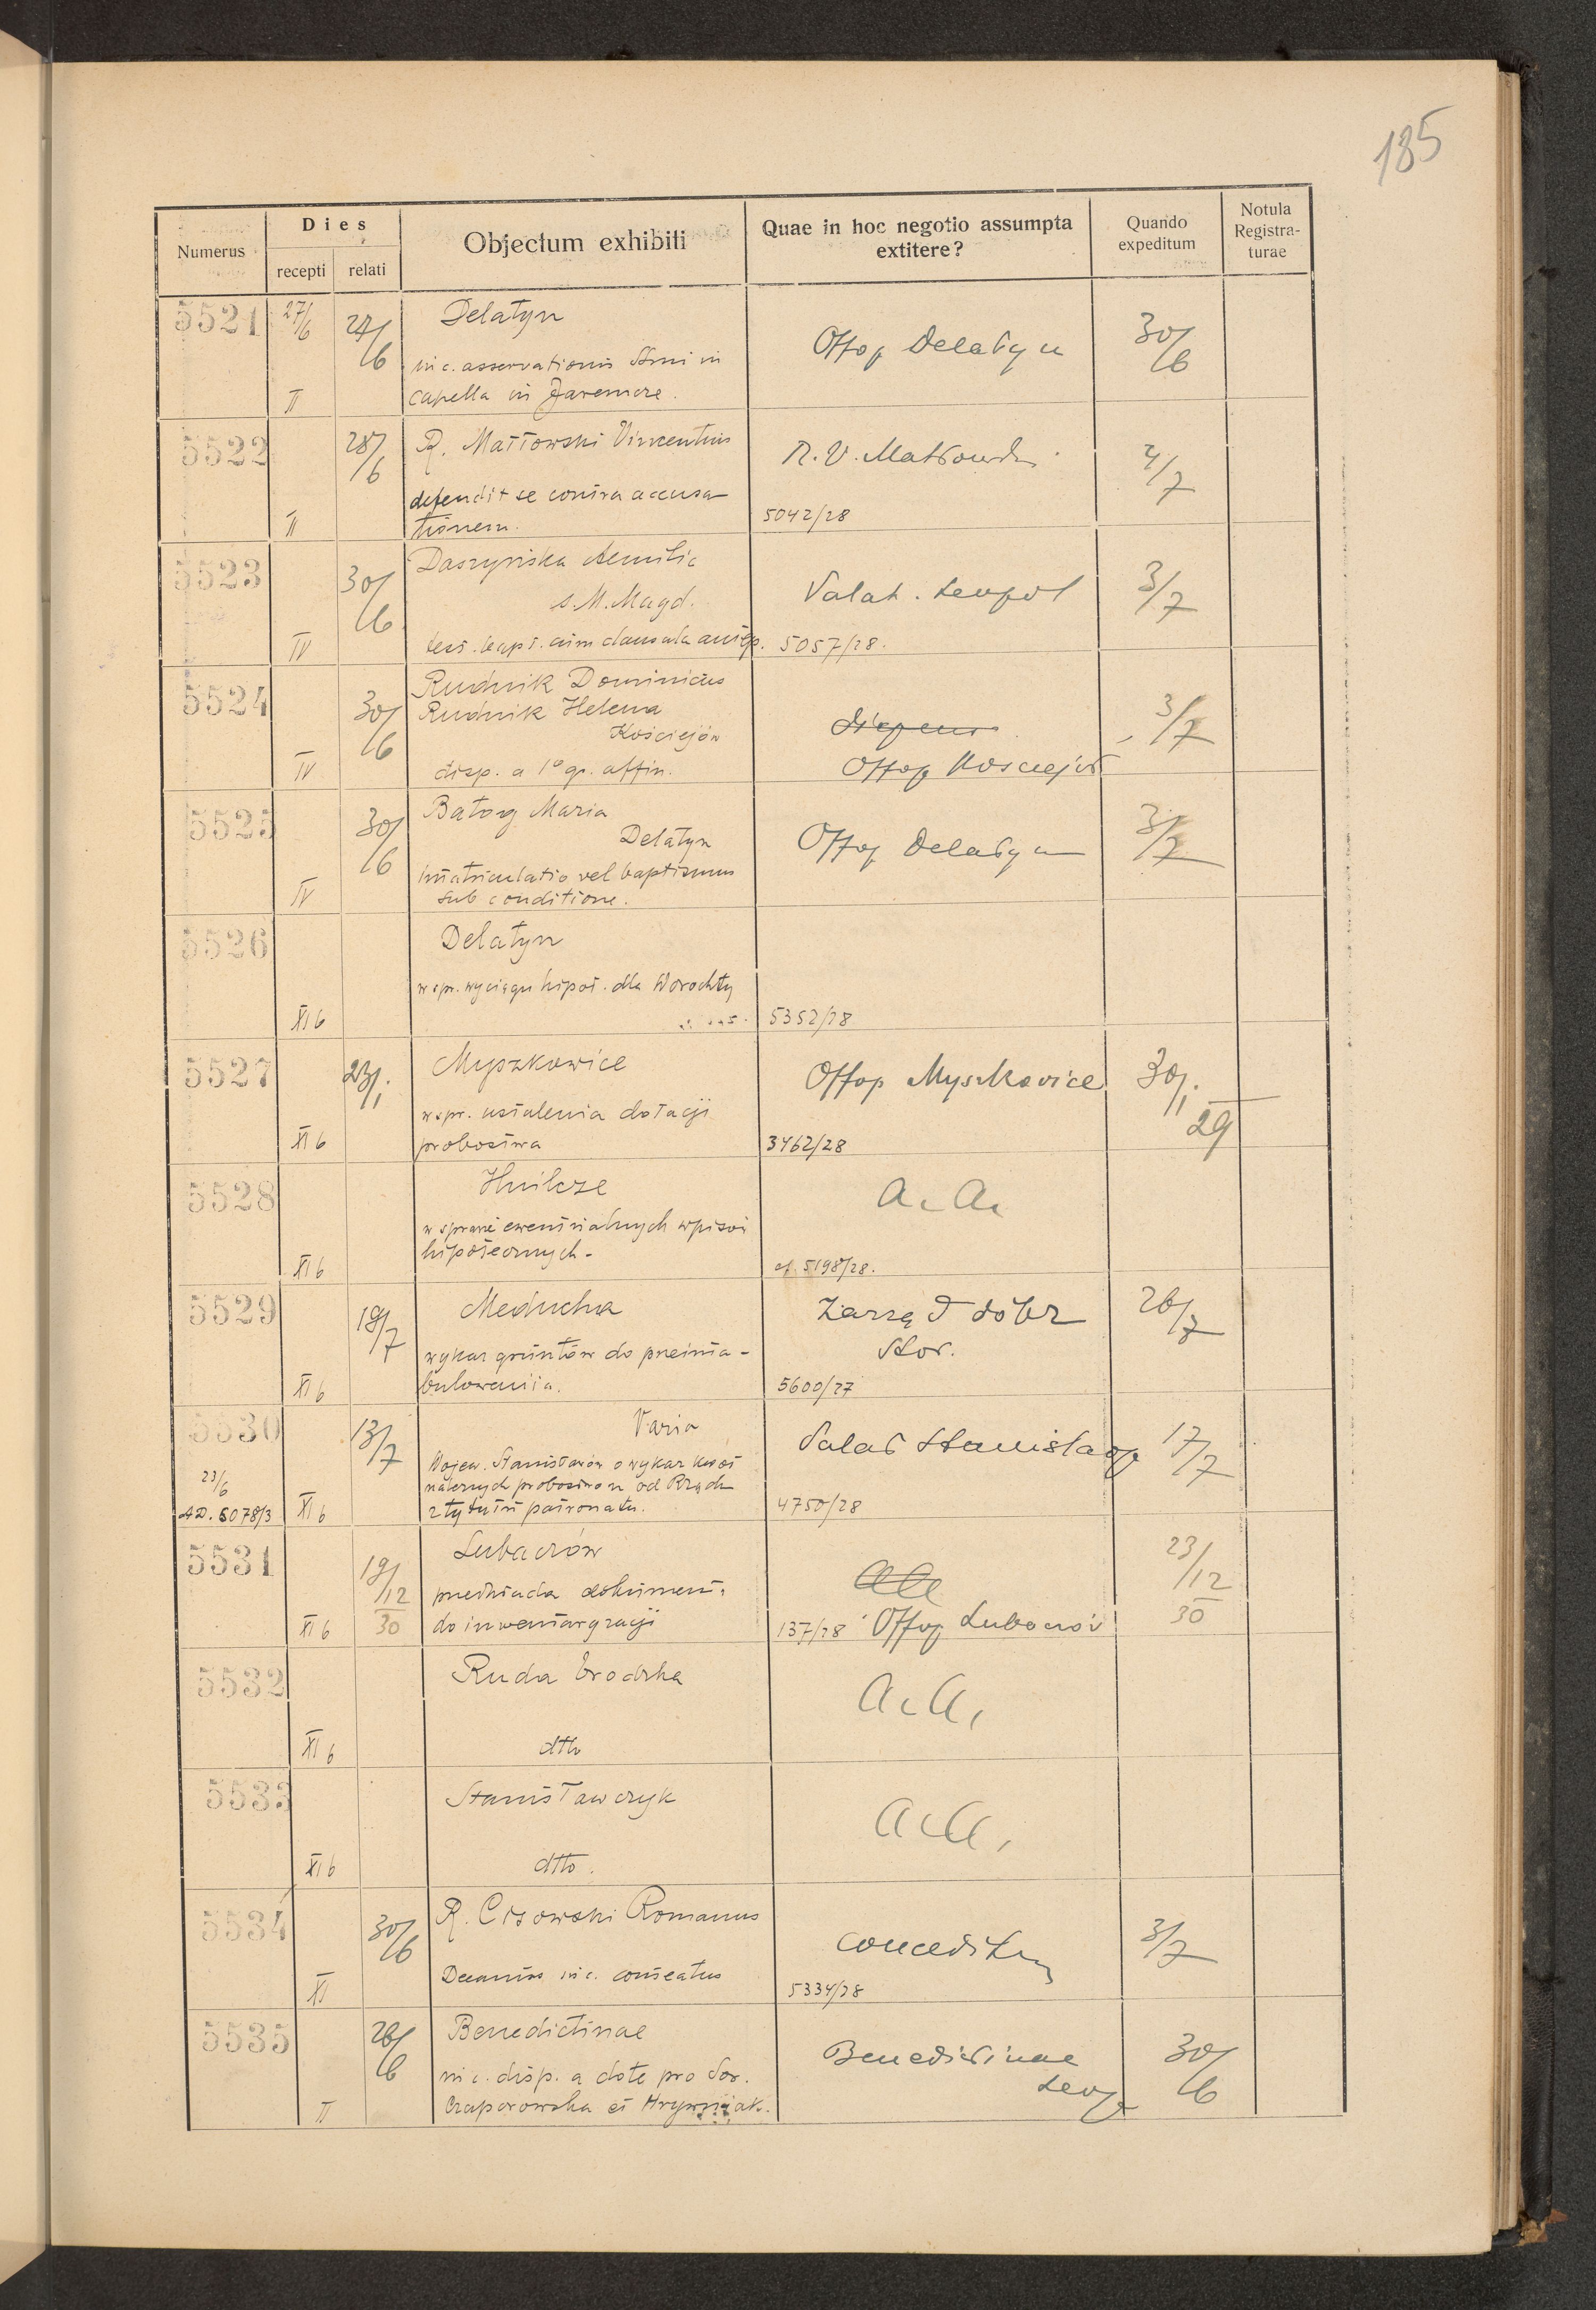 185
Numerus
Dies
recepti relati
Objectum exhibiti
Quae in hoc negotio assumpta
extitere?
Quando
expeditum
Notula
Registra-
turae
5521 27/6 27/6 Delatyn
in c. asservationis Ssmi in
capella in Jaremcze.
II
Offop Delatyn 30/6
5522 28/6 R. Matłowski Vincentius
defendit se contra accusa-
tionem.
II
R. V. Matłowski 5042/28 4/7
5523 30/6 Daszyńska Aemilia
s. M. Magd.
test. bapt. cum clausula antep.
IV
Valat. Leopol 5057/28. 3/7
5524 30/6 Rudnik Dominicus
Rudnik Helena
Kościejów
disp. a 1º gr. affin.
IV
Offop Kosciejów 3/7
5525 30/6 Batog Maria
Delatyn
imatriculatio vel baptismus
sub conditione.
IV
Offop Delatyn 3/7
5526 Delatyn
w spr. wyciągu hipot. dla Worochty
XI b
5352/28
5527 23/1. Myszkowice
w spr. ustalenia dotacji
probostwa
XI b
Offop Myszkovice 3462/28 30/1. 29
5528 Hnilcze
w sprawie ewentualnych wpisów
hipotecznych-
XI b
a. a. cf. 5198/28.
5529 19/7 Meducha
wykaz gruntów do preinta-
bulowania.
XI b
Zarząd dóbr
Stor.
5600/27 26/7
5530 13/7 Varia
Wojew. Stanisławów o wykaz kwot
należnych probostwom od Rządu
z tytułu patronatu.
23/6
AD. 5078/3 XI b
Valat Stanislaop 4750/28 17/7
5531 19/12 30 Lubaczów
przedkłada dokument.
do inwentaryzacji
XI b
aa
137/28 Offop Lubaczów 23/12 30
5532 Ruda brodzka
dtto
XI b
a. a.
5533 Stanisławczyk
dtto.
XI b
a. a.
5534 30/6 R. Cisowski Romanus
Decanus in c. comeatus
XI
conceditur 5334/28 3/7
5535 28/6 Benedictinae
in c. disp. a dote pro Sor.
Czaporowska et Hrywniak.
II
Benedictinae
Leop 30/6